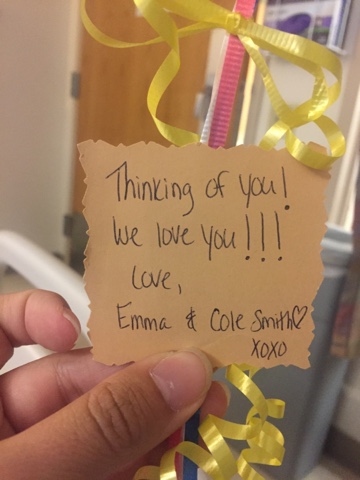 Thinking of you!
We love you!!!
Love,
Emma & Cole Smith♡
XOXO